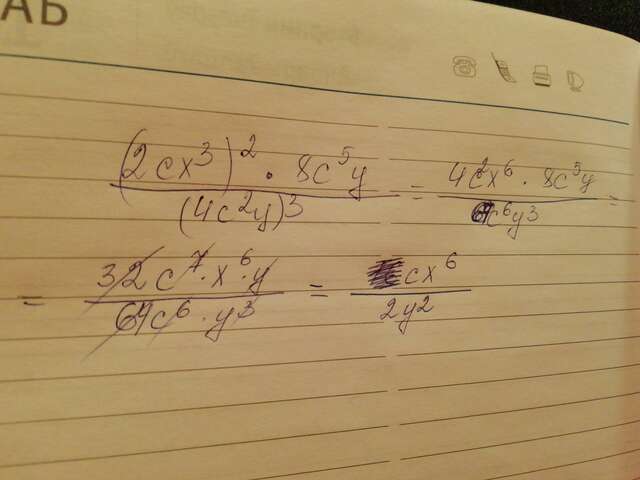 АБ
(2cx³)² · 8c⁵y / (4c²y)³ = 4c²x⁶ · 8c⁵y / 64c⁶y³ =
= 32c⁷·x⁶·y / 64c⁶·y³ = cx⁶ / 2y²